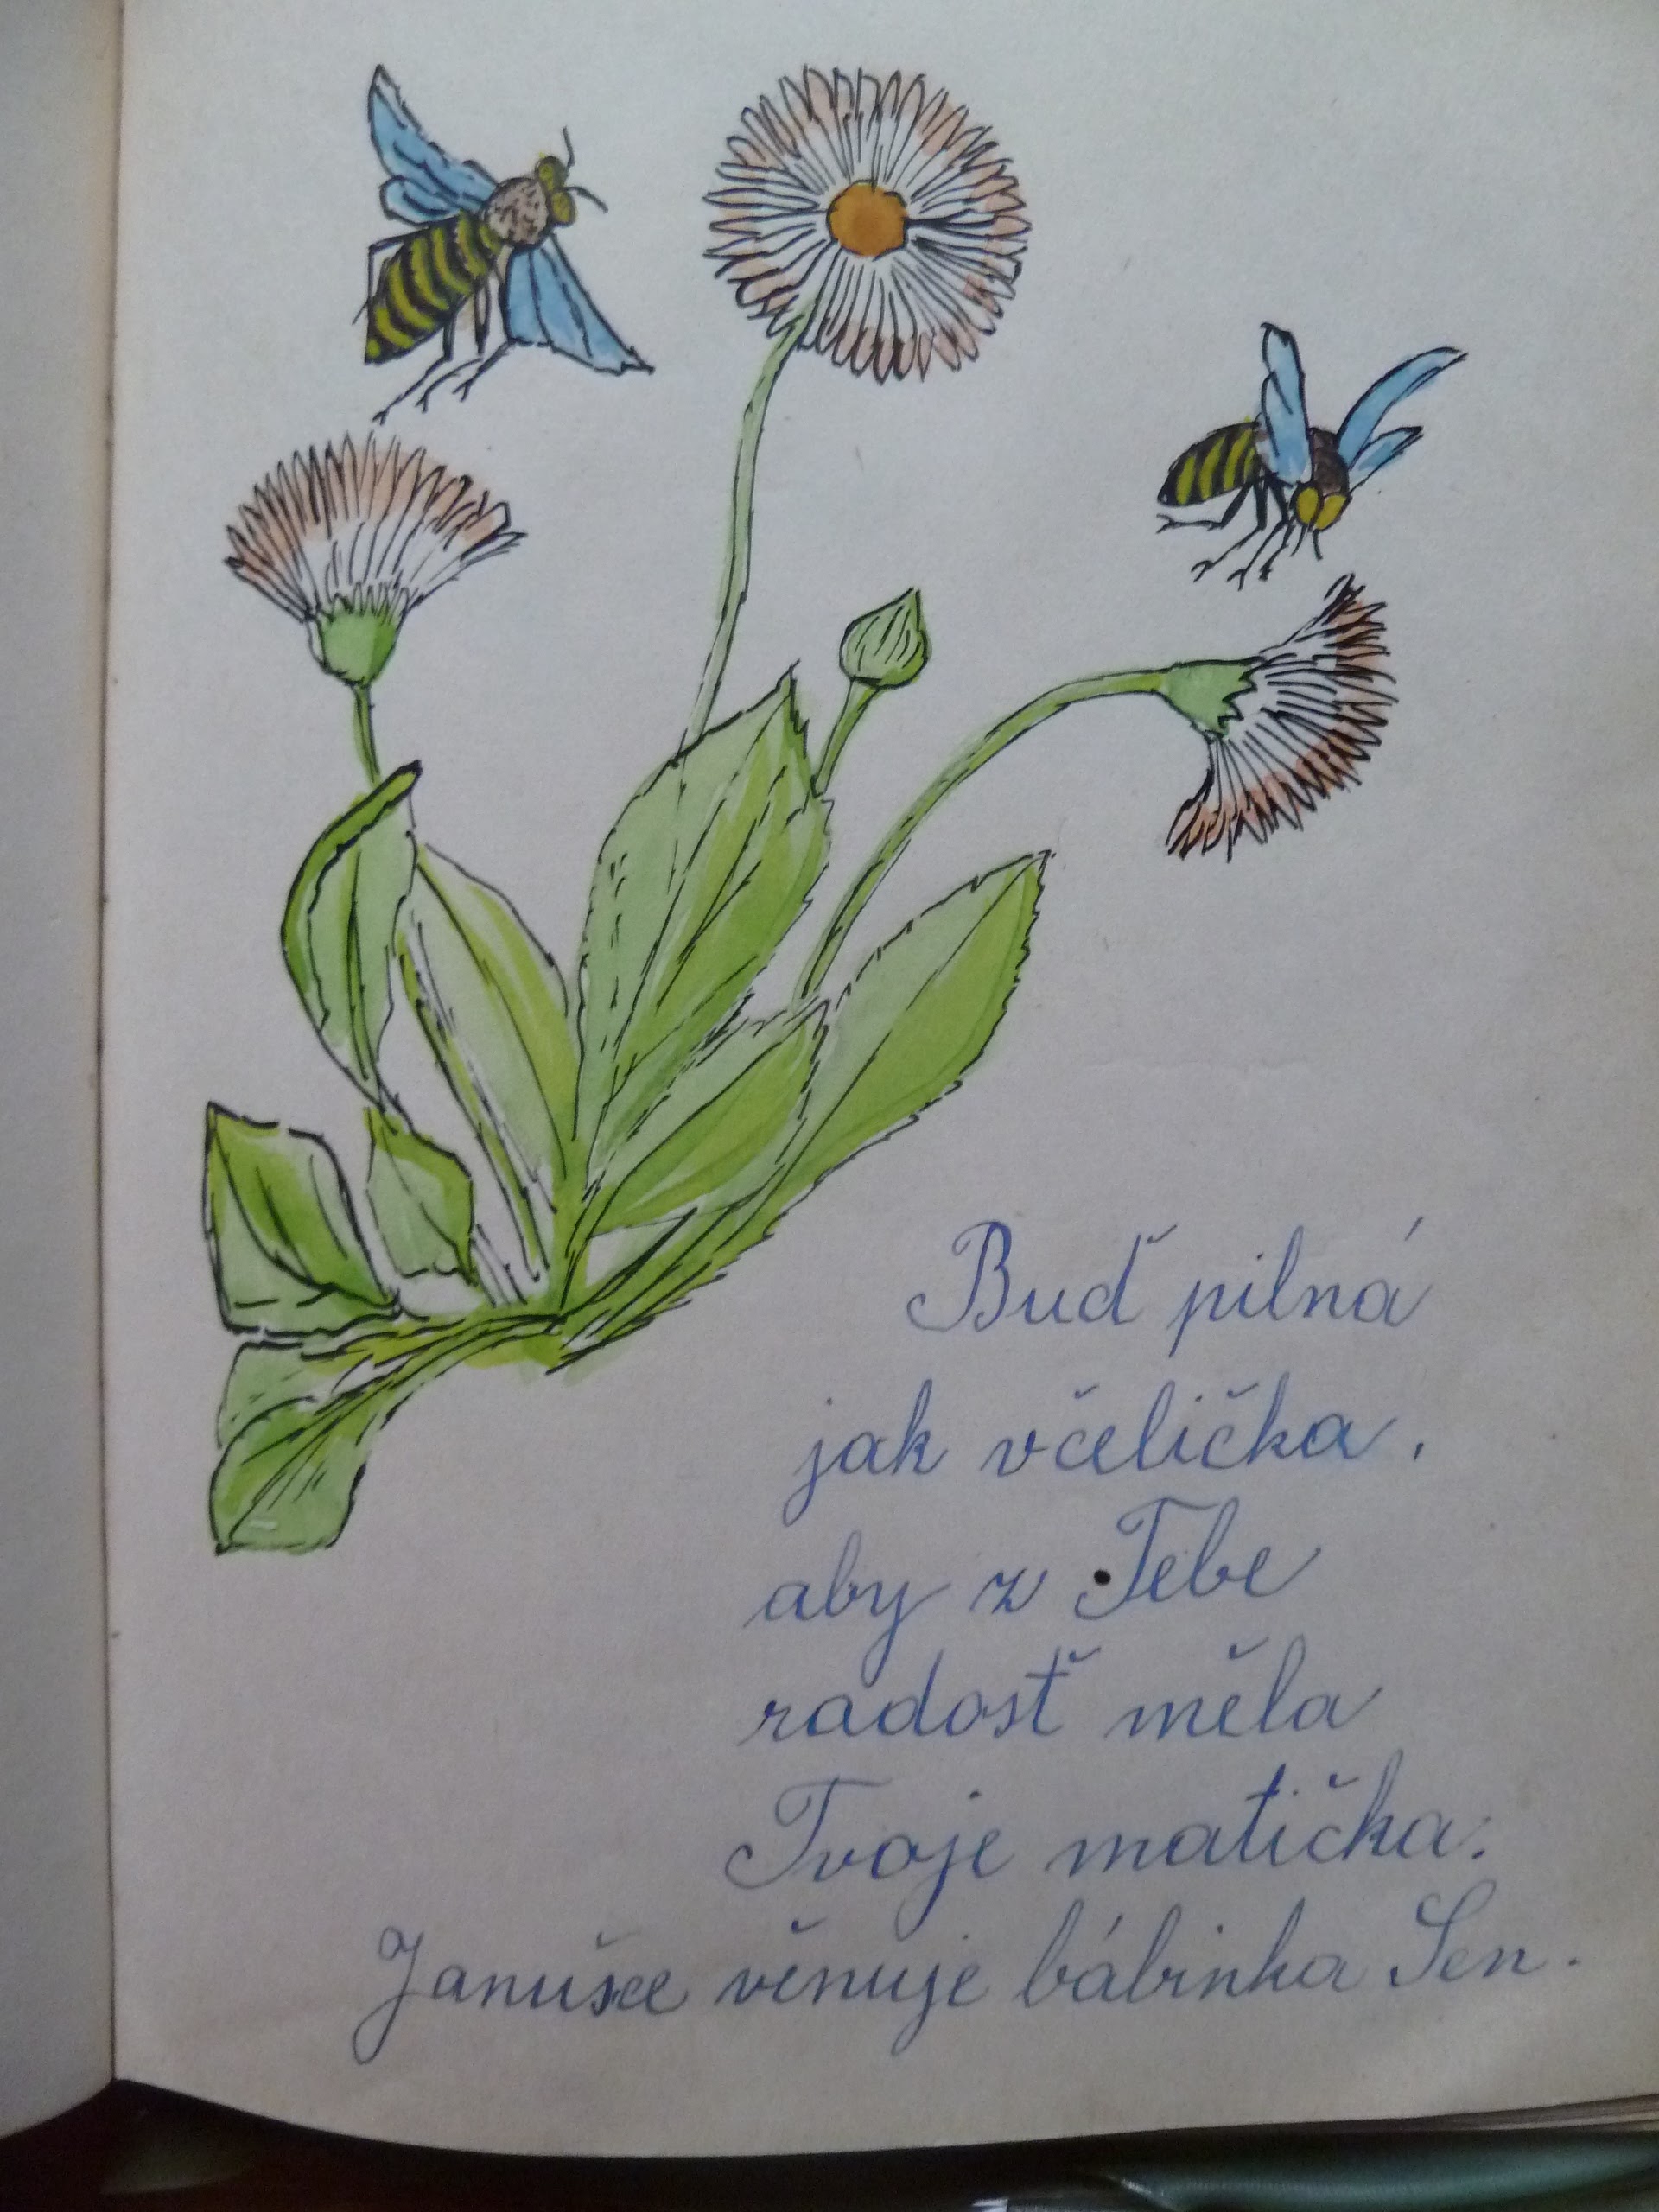 Buď pilná
jak včelička,
aby z Tebe
radosť měla
Tvoje matička.
Janušce věnuje bábinka Sen.